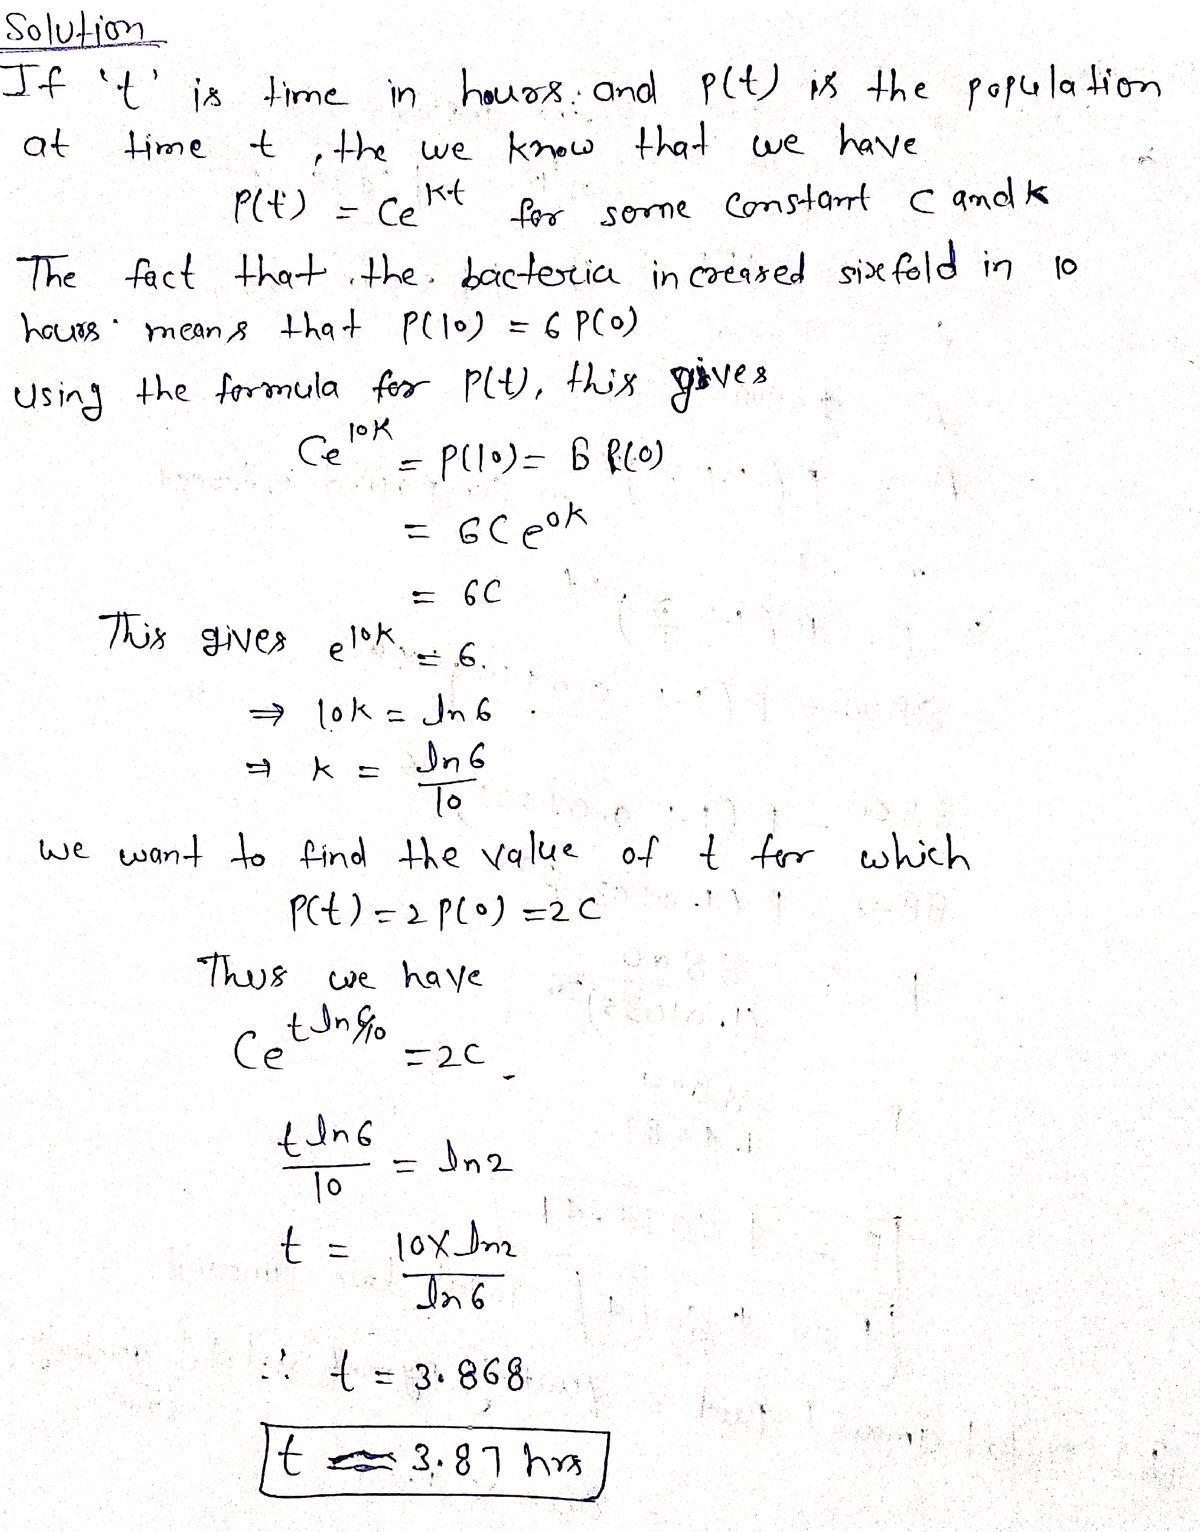 Solution
If 't' is time in hours. and P(t) is the population
at time t, the we know that we have
P(t) = Ce^kt for some constant C and k
The fact that the bacteria increased sixfold in 10
hours means that P(10) = 6 P(0)
Using the formula for P(t), this gives
Ce^10K = P(10) = 6 P(0)
= 6C e^0k
= 6C
This gives e^10K = 6.
⇒ 10k = ln 6
⇒ k = ln 6 / 10
we want to find the value of t for which
P(t) = 2 P(0) = 2C
Thus we have
Ce^t ln 6/10 = 2C
t ln 6 / 10 = ln 2
t = 10 X ln 2 / ln 6
∴ t = 3.868
t ≈ 3.87 hrs